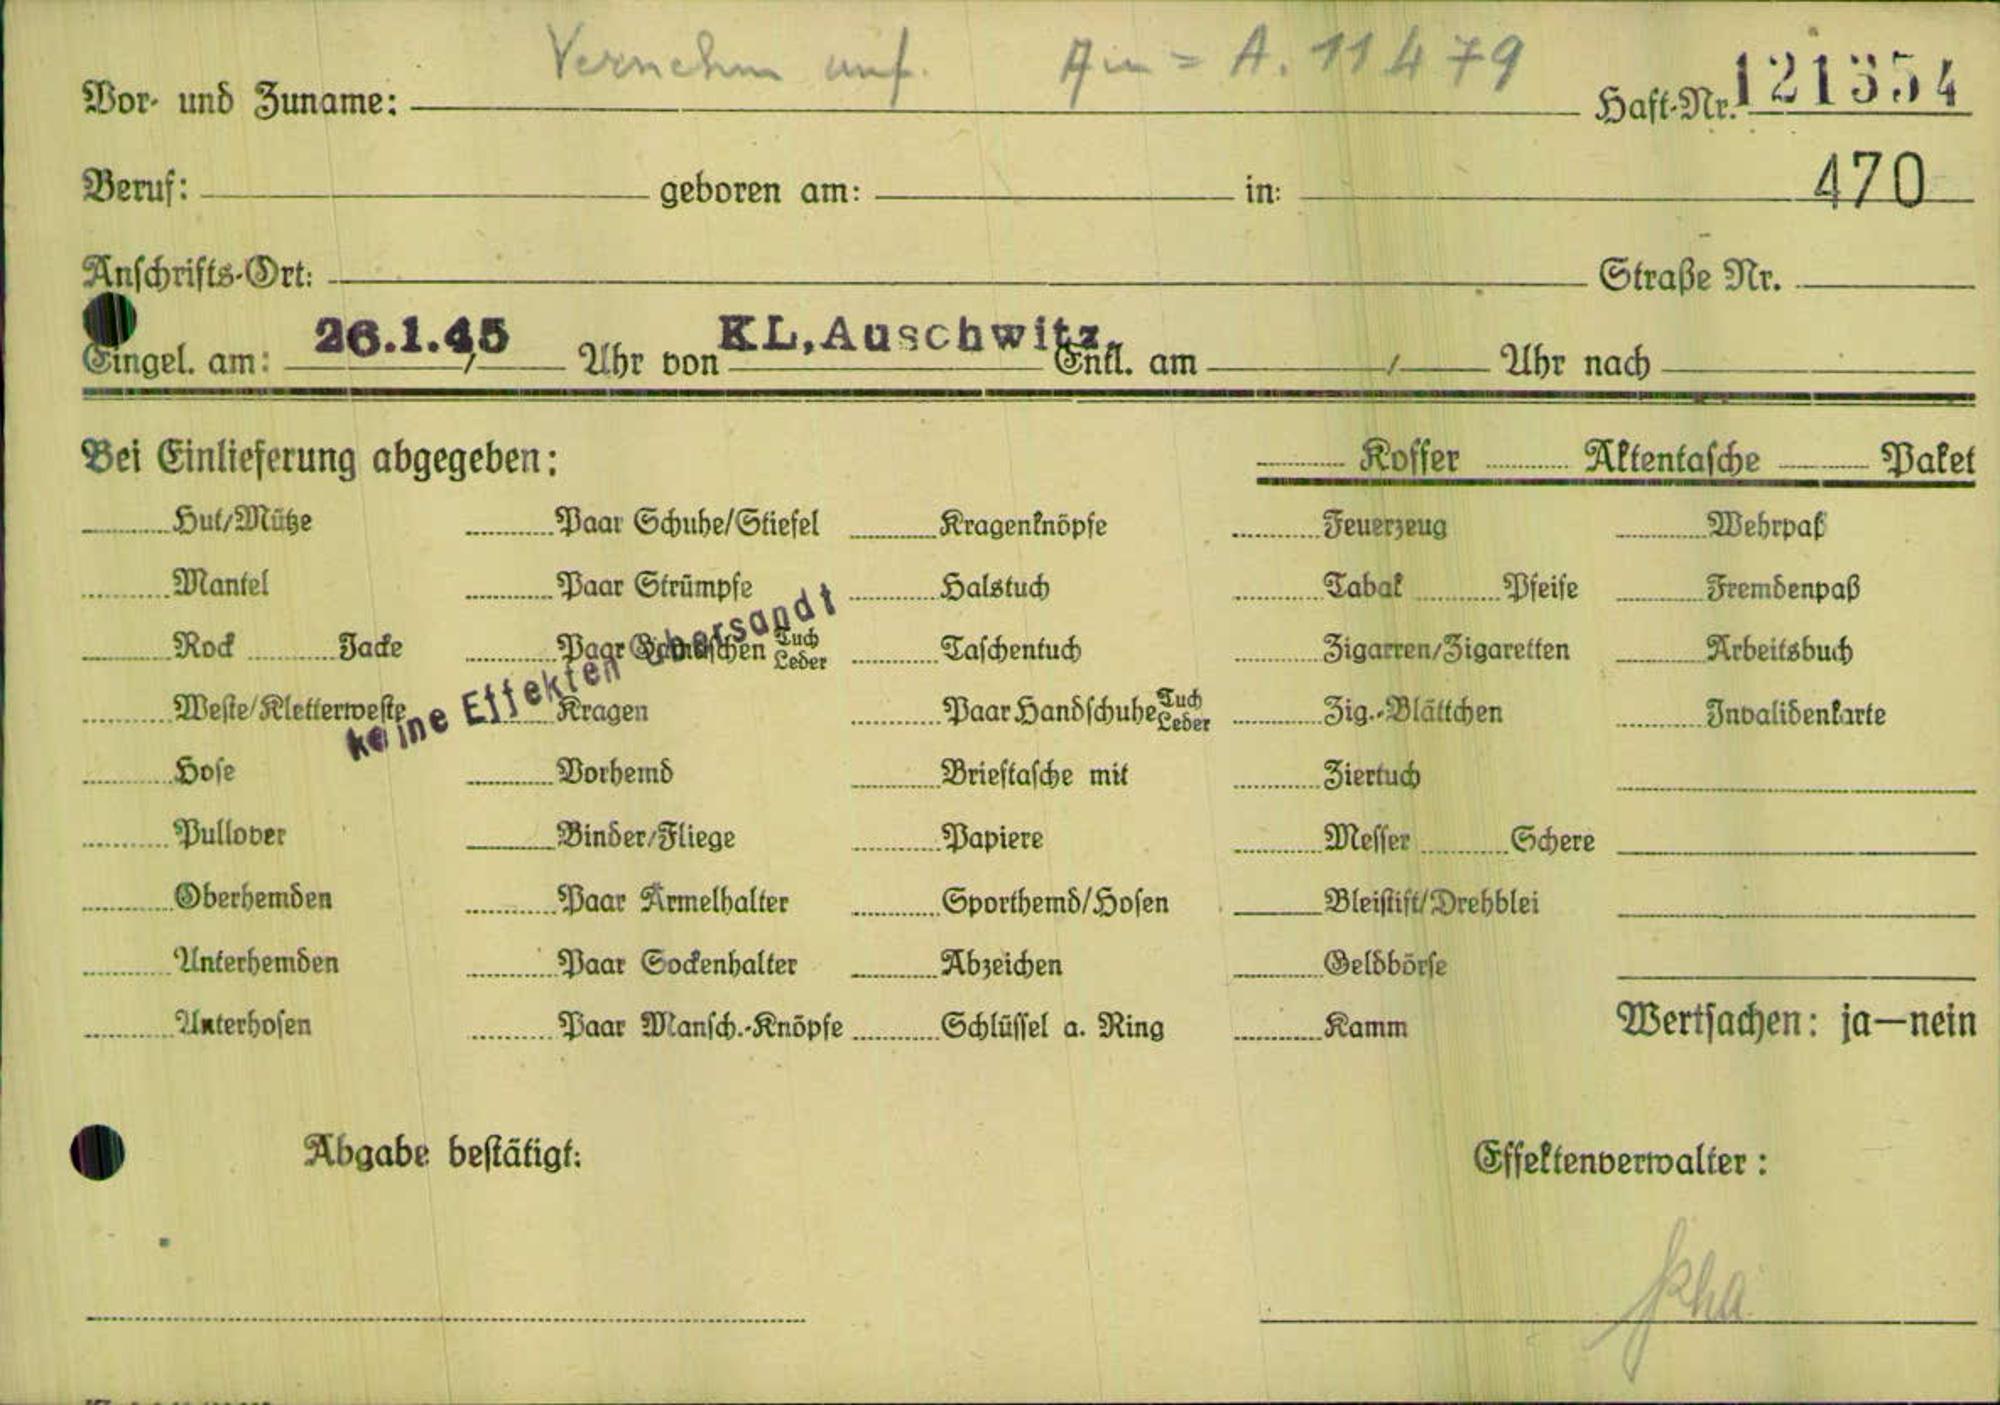 Vernehm unf. Au = A. 11479
Vor- und Zuname: Haft-Nr. 121354
Beruf: geboren am: in: 470
Anschrifts-Ort: Straße Nr.
Eingel. am: 26.1.45 / Uhr von KL, Auschwitz. Entl. am / Uhr nach
Bei Einlieferung abgegeben: Koffer Aktentasche Paket
Hut/Mütze Paar Schuhe/Stiefel Kragenknöpfe Feuerzeug Wehrpaß
Mantel Paar Strümpfe Halstuch Tabak Pfeife Fremdenpaß
Rock Jacke Paar Gamaschen Tuch Leder Taschentuch Zigarren/Zigaretten Arbeitsbuch
keine Effekten übersandt
Weste/Kletterweste Kragen Paar Handschuhe Tuch Leder Zig.-Blättchen Invalidenkarte
Hose Vorhemd Brieftasche mit Ziertuch
Pullover Binder/Fliege Papiere Messer Schere
Oberhemden Paar Ärmelhalter Sporthemd/Hosen Bleistift/Drehblei
Unterhemden Paar Sockenhalter Abzeichen Geldbörse
Unterhosen Paar Mansch.-Knöpfe Schlüssel a. Ring Kamm Wertsachen: ja—nein
Abgabe bestätigt: Effektenverwalter: